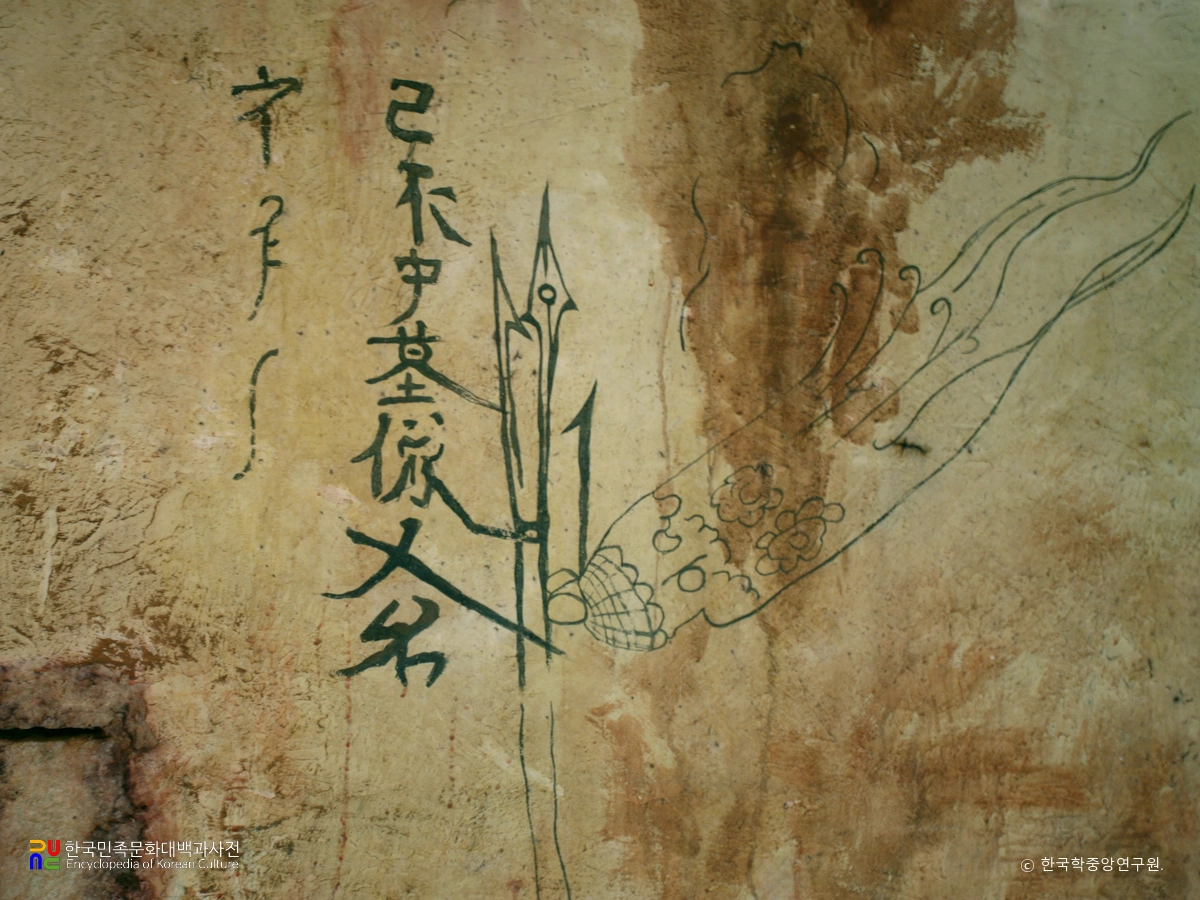 己未中墓像人名
한국민족문화대백과사전
Encyclopedia of Korean Culture
ⓒ 한국학중앙연구원.